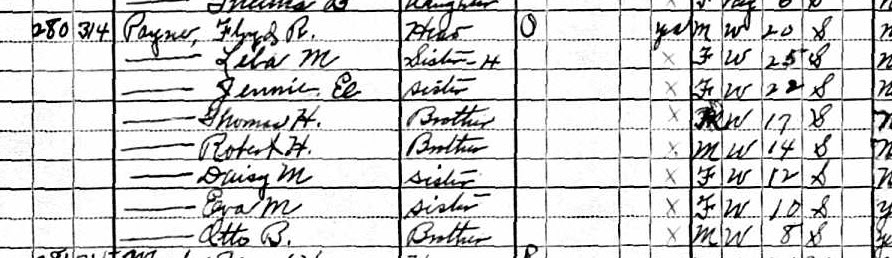 Daughter
280 314 Payne, Floyd R. Head O yes M W 20 S
— Leba M Sister-H X F W 25 S
— Jennie El Sister X F W 22 S
— Thomas H. Brother X M W 17 S
— Robert H. Brother X M W 14 S
— Daisy M Sister X F W 12 S
— Eva M Sister X F W 10 S
— Otto B. Brother X M W 8 S